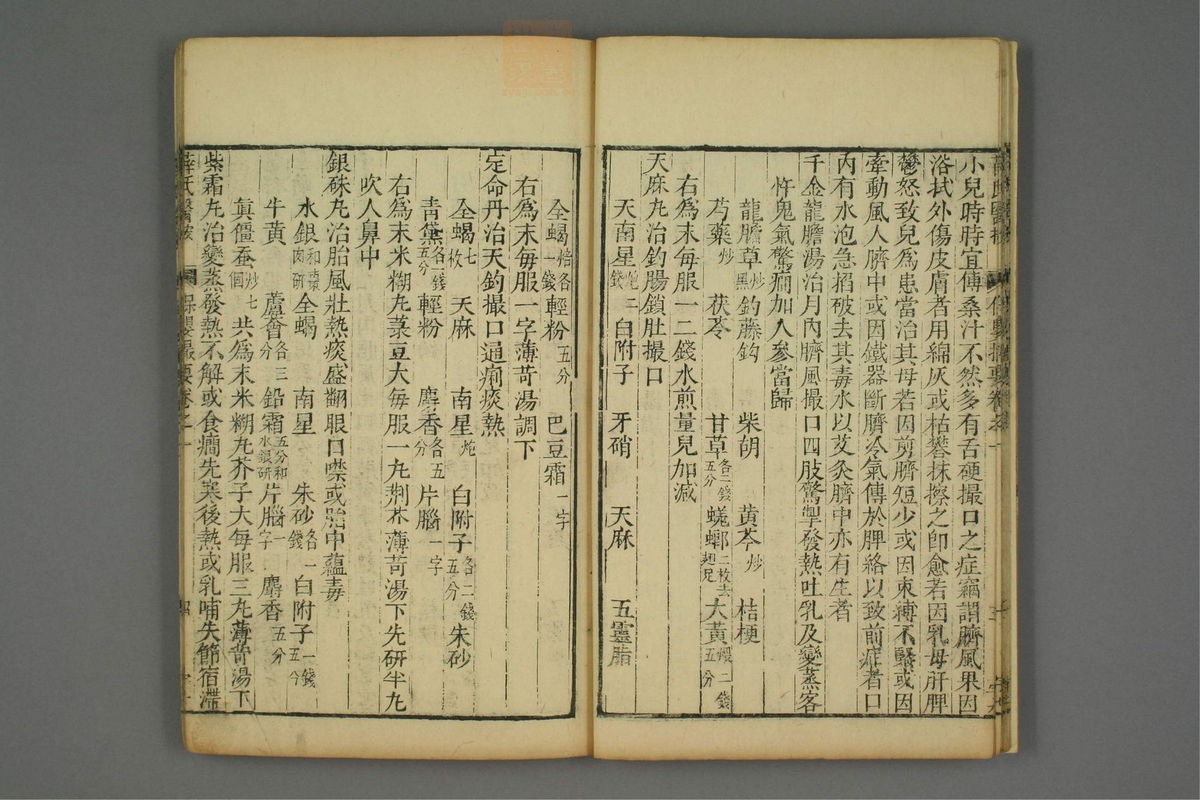 小兒時時宜傳桑汁不然多有舌硬撮口之症竊謂臍風果因
浴拭外傷皮膚者用綿灰或枯礬抹擦之卽愈若因乳母肝脾
鬱怒致兒爲患當治其母若因剪臍短少或因束縛不緊或因
牽動風人臍中或因鐵器斷臍冷氣傳於脾絡以致前症者口
內有水泡急掐破去其毒水以艾灸臍中亦有生者
千金龍膽湯治月內臍風撮口四肢驚掣發熱吐乳及變蒸客
忤鬼氣驚癎加人參當歸
龍膽草炒黑 釣藤鈎 柴胡 黃芩炒 桔梗
芍藥炒 茯苓 甘草各二錢五分 蜣螂二枚去翅足 大黃煨二錢五分
右爲末每服一二錢水煎量兒加減
天麻丸治釣腸鎖肚撮口
天南星炮二錢 白附子 牙硝 天麻 五靈脂
全蝎焙各一錢 輕粉五分 巴豆霜一字
右爲末每服一字薄苛湯調下
定命丹治天釣撮口通痢痰熱
全蝎七枚 天麻 南星炮 白附子各二錢五分 朱砂
青黛各一錢五分 輕粉 麝香各五分 片腦一字
右爲末米糊丸菉豆大每服一丸荆芥薄苛湯下先研半丸
吹人鼻中
銀硃丸治胎風壯熱痰盛翻眼口噤或胎中蘊毒
水銀和棗肉研 全蝎 南星 朱砂各一錢 白附子一錢五分
牛黃 蘆薈各三分 鉛霜五分和水銀研 片腦一字 麝香五分
眞僵蚕炒七個 共爲末米糊丸芥子大每服三丸薄苛湯下
紫霜丸治變蒸發熱不解或食癎先寒後熱或乳哺失節宿滯
薛氏醫按 保嬰撮要卷之一